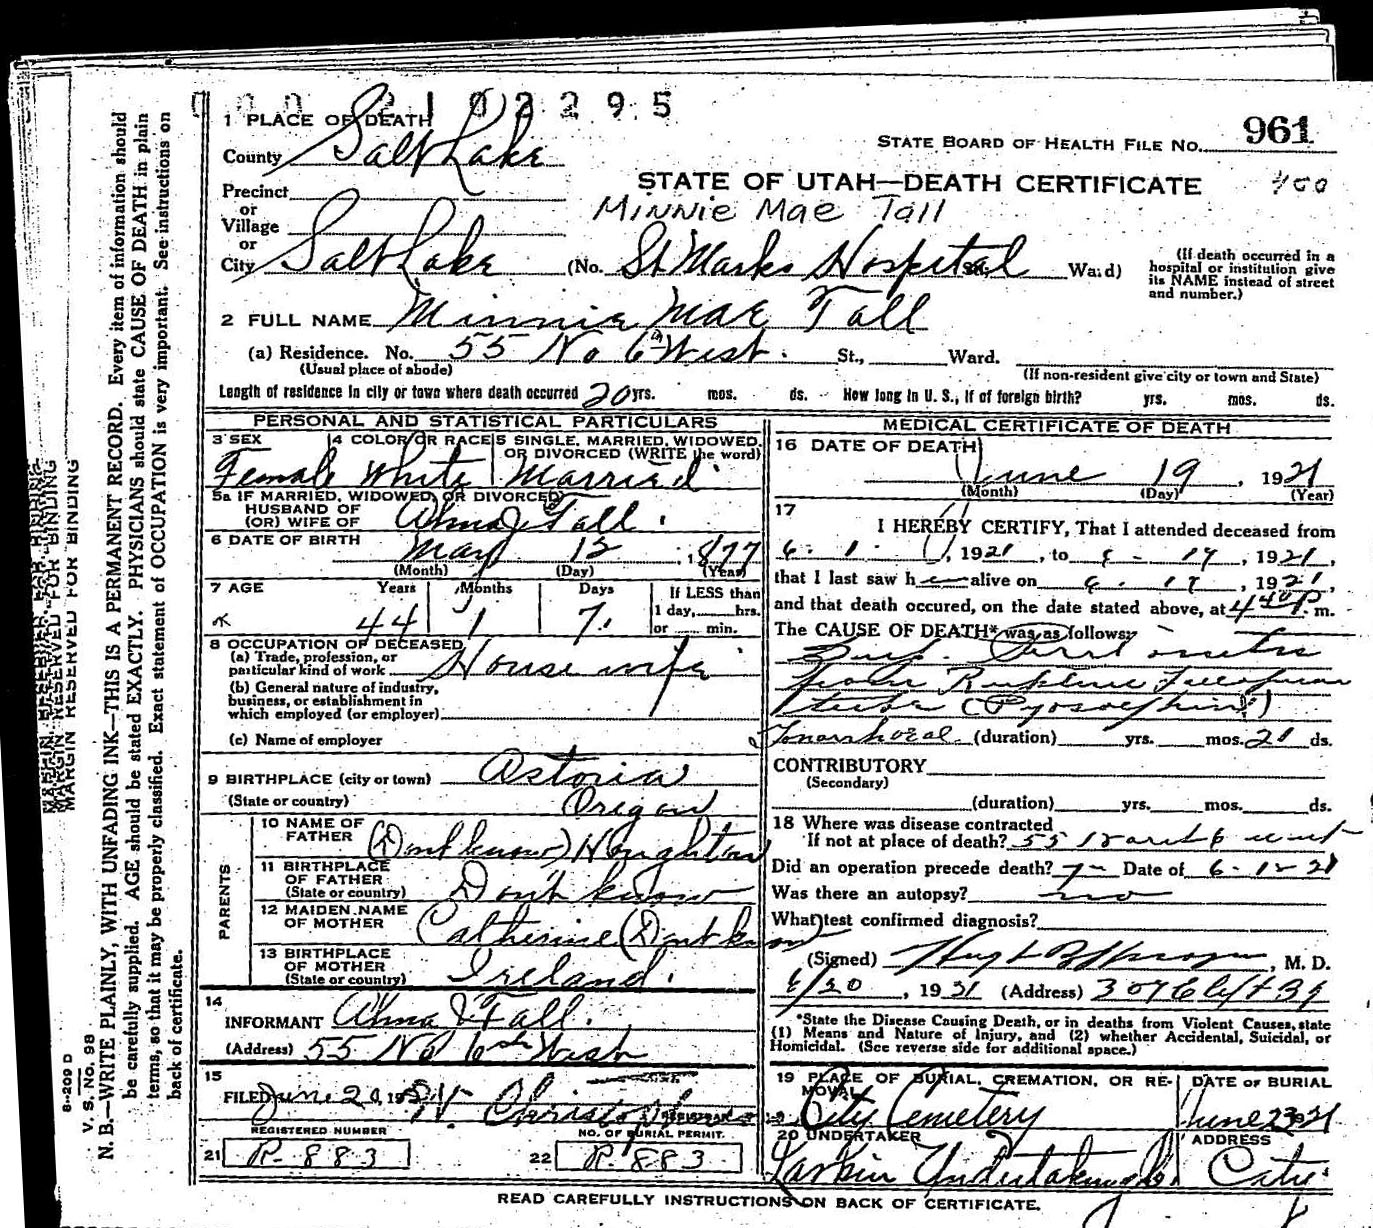 000 2102295
1 PLACE OF DEATH
County Salt Lake
STATE BOARD OF HEALTH FILE No. 961
Precinct
or
Village
or
City Salt Lake
STATE OF UTAH—DEATH CERTIFICATE 400
Minnie Mae Tall
(No. St Marks Hospital St. Ward)
(If death occurred in a
hospital or institution give
its NAME instead of street
and number.)
2 FULL NAME Minnie Mae Tall
(a) Residence. No. 55 No 6th West St., Ward.
(Usual place of abode)
(If non-resident give city or town and State)
Length of residence in city or town where death occurred 20 yrs. mos. ds. How long in U. S., if of foreign birth? yrs. mos. ds.
PERSONAL AND STATISTICAL PARTICULARS
3 SEX Female
4 COLOR OR RACE White
5 SINGLE, MARRIED, WIDOWED,
OR DIVORCED (WRITE the word)
Married
5a IF MARRIED, WIDOWED, OR DIVORCED
HUSBAND OF
(OR) WIFE OF Alma J Tall.
6 DATE OF BIRTH May 12, 1877
(Month) (Day) (Year)
7 AGE Years Months Days
44 1 7.
If LESS than
1 day, hrs.
or min.
8 OCCUPATION OF DECEASED
(a) Trade, profession, or
particular kind of work Housewife
(b) General nature of industry,
business, or establishment in
which employed (or employer)
(c) Name of employer
9 BIRTHPLACE (city or town) Astoria
(State or country) Oregon
PARENTS
10 NAME OF
FATHER (Dont know) Houghton
11 BIRTHPLACE
OF FATHER
(State or country) Don't know
12 MAIDEN NAME
OF MOTHER Catherine (Dont know)
13 BIRTHPLACE
OF MOTHER
(State or country) Ireland.
14
INFORMANT Alma J Tall.
(Address) 55 No 6th West
15
FILED June 20, 192
REGISTRAR
REGISTERED NUMBER
21 R-883
NO. OF BURIAL PERMIT.
22 R-883
MEDICAL CERTIFICATE OF DEATH
16 DATE OF DEATH
June 19, 1921
(Month) (Day) (Year)
17
I HEREBY CERTIFY, That I attended deceased from
6-1-, 1921, to 6-19, 1921,
that I last saw her alive on 6-19, 1921,
and that death occured, on the date stated above, at 4 40 P. m.
The CAUSE OF DEATH* was as follows:
tube
(duration) yrs. mos. 21 ds.
CONTRIBUTORY
(Secondary)
(duration) yrs. mos. ds.
18 Where was disease contracted
If not at place of death? 55
Did an operation precede death? Date of 6-12-21
Was there an autopsy? no
What test confirmed diagnosis?
(Signed) , M. D.
6/20, 1921 (Address)
*State the Disease Causing Death, or in deaths from Violent Causes, state
(1) Means and Nature of Injury, and (2) whether Accidental, Suicidal, or
Homicidal. (See reverse side for additional space.)
19 PLACE OF BURIAL, CREMATION, OR RE-
MOVAL
City Cemetery
DATE OF BURIAL
June 23-21
20 UNDERTAKER
Larkin Undertaking Co.
ADDRESS
City.
READ CAREFULLY INSTRUCTIONS ON BACK OF CERTIFICATE.
MARGIN RESERVED FOR BINDING
8-209 D
V. S. No. 98
N. B.—WRITE PLAINLY, WITH UNFADING INK—THIS IS A PERMANENT RECORD. Every item of information should
be carefully supplied. AGE should be stated EXACTLY. PHYSICIANS should state CAUSE OF DEATH in plain
terms, so that it may be properly classified. Exact statement of OCCUPATION is very important. See instructions on
back of certificate.